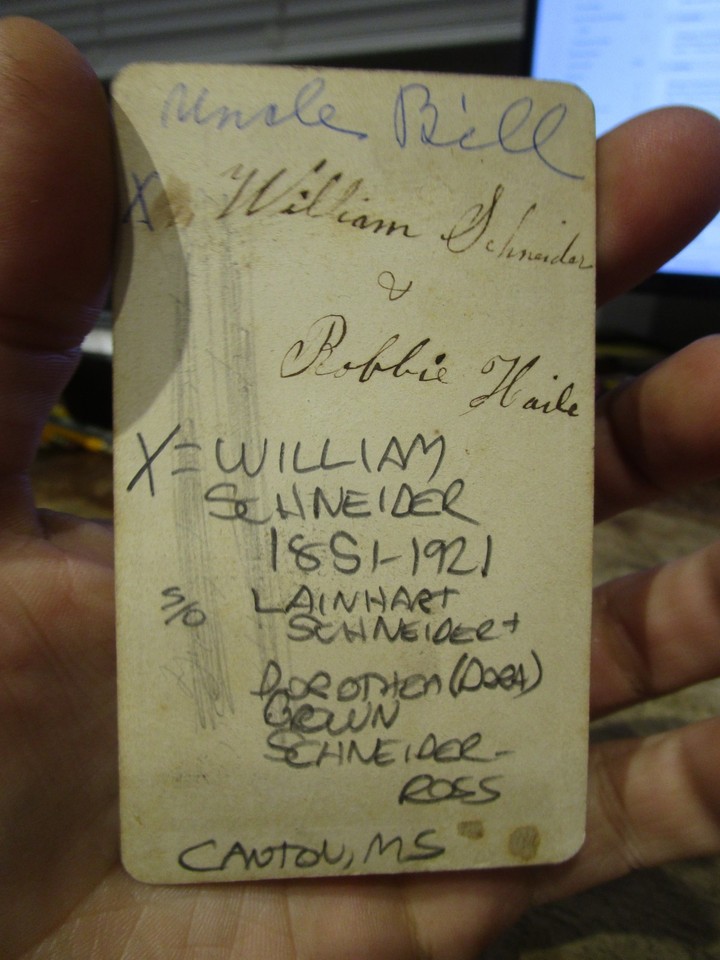 Uncle Bill
X William Schneider
&
Robbie Haile
X = WILLIAM
SCHNEIDER
1851-1921
S/O LAINHART
SCHNEIDER +
DOROTHEA (DORA)
GROWN
SCHNEIDER-
ROSS
CANTON, MS